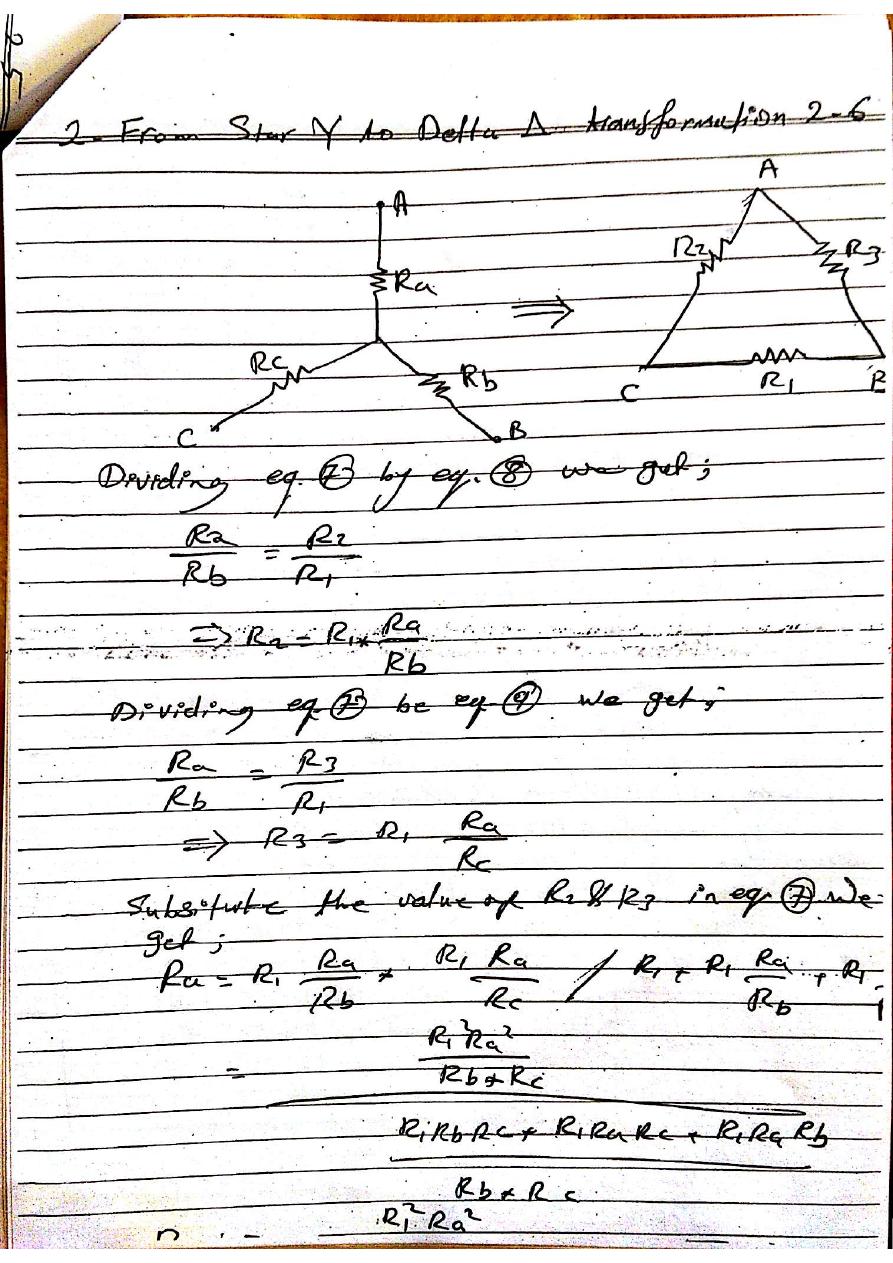 2- From Star Y to Delta Δ transformation 2-6
A
A
Ra
R2
R3
⇒
Rc
Rb
C
B
C
R1
B
Dividing eq. ⑦ by eq. ⑧ we get ;
Ra/Rb = R2/R1
⇒ R2 = R1 * Ra/Rb
Dividing eq. ⑦ be eq ⑨ we get ;
Ra/Rb = R3/R1
⇒ R3 = R1 Ra/Rc
Subsitute the value of R2 & R3 in eq. ⑦ we
get ;
Ra = R1 Ra/Rb * R1 Ra/Rc / R1 + R1 Ra/Rb + R1
= R1²Ra² / Rb * Rc
R1RbRc + R1RaRc + R1RaRb
Rb * Rc
R1²Ra²